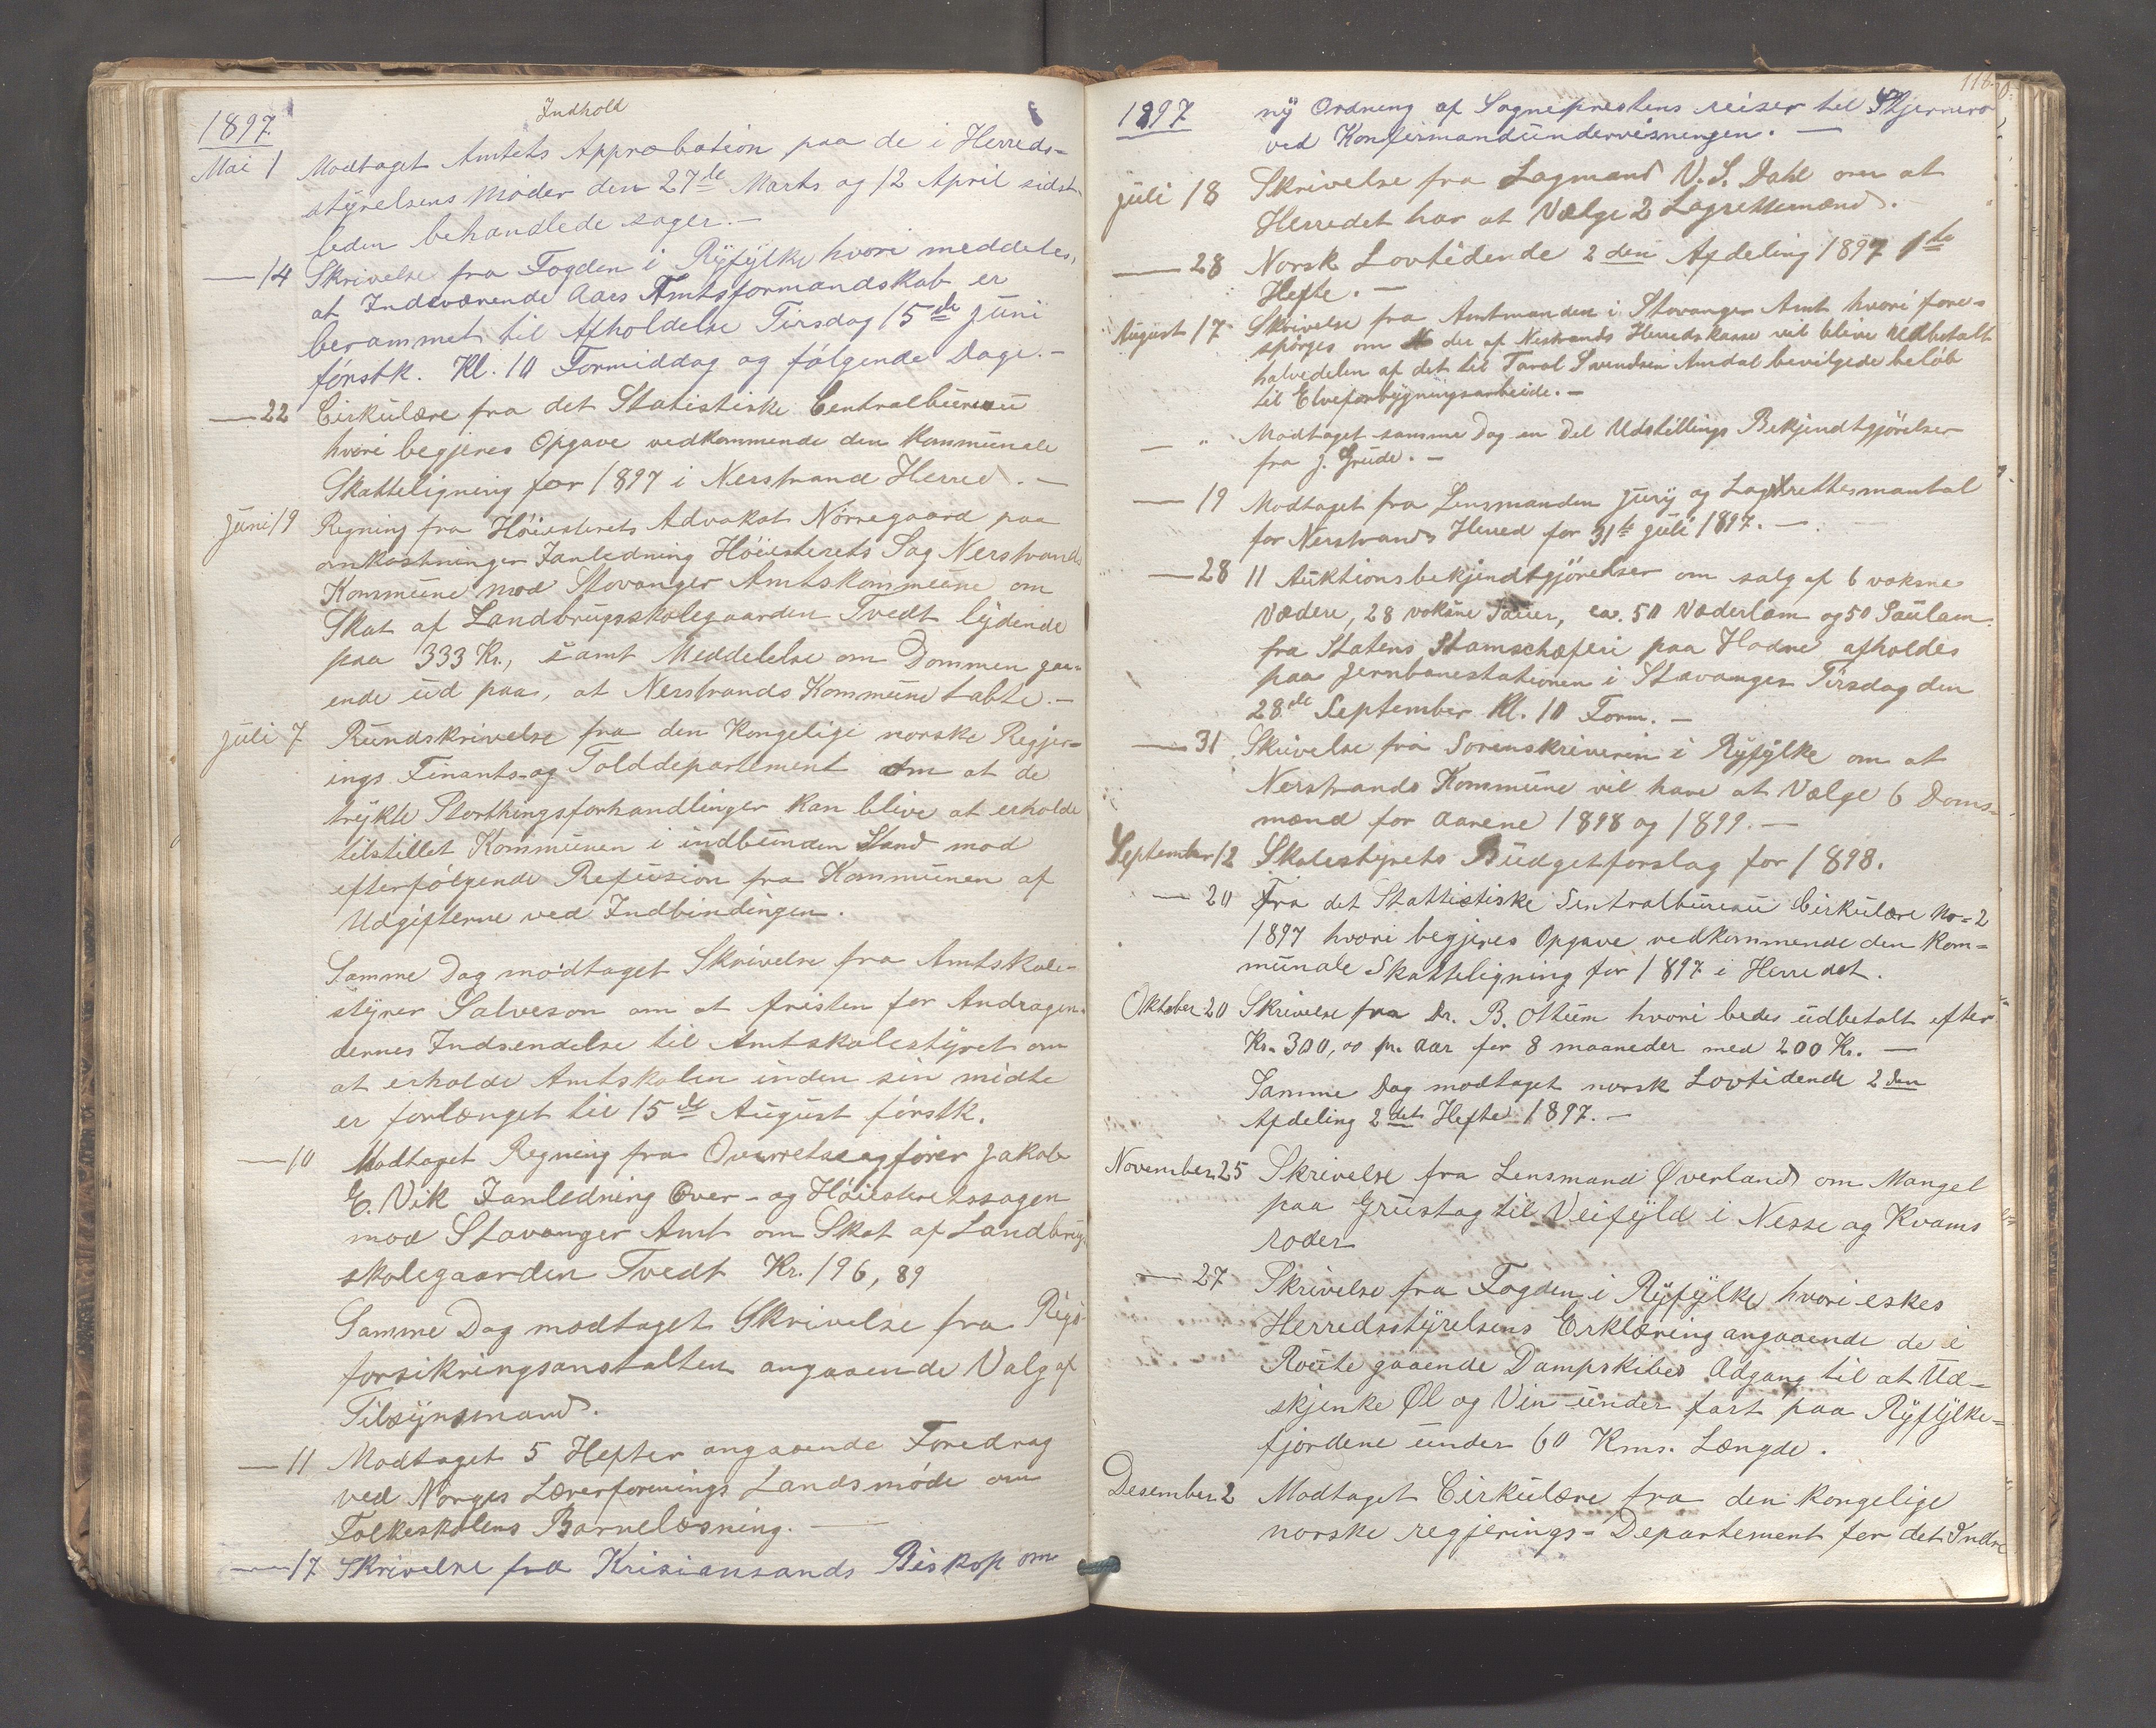 Indhold
1897
Mai 1 Modtaget Amtets Approbation paa de i Herreds-
styrelsens Møder den 27de Marts og 12 April sidst-
leden behandlede sager.-
— 14 Skrivelse fra Fogden i Ryfylke hvori meddeles,
at Indeværende Aars Amtsformandskab er
berammet til Afholdelse Tirsdag 15de Juni
førstk. Kl. 10 Formiddag og følgende Dage.-
— 22 Cirkulære fra det Statistiske Centralbureau
hvori begjeres Opgave vedkommende den Kommunale
Skatteligning for 1897 i Nerstrand Herred.-
Juni 19 Regning fra Høiesterets Advokat Nørregaard paa
omkostninger Ianledning Høiesterets Sag Nerstrands
Kommune mod Stavanger Amtskommune om
Skat af Landbrugsskolegaarden Tvedt lydende
paa 333 Kr., samt Meddelelse om Dommen gaa-
ende ud paa, at Nerstrands Kommune tabte.-
Juli 7 Rundskrivelse fra den Kongelige norske Regjer-
ings Finants-og Tolddepartement om at de
trykte Storthingsforhandlinger kan blive at erholde
tilstillet Kommunen i indbunden Stand mod
efterfølgende Refusion fra Kommunen af
Udgifterne ved Indbindingen.
Samme Dag modtaget Skrivelse fra Amtskole-
styrer Salveson om at fristen for Andragen-
dernes Indsendelse til Amtskolestyret om
at erholde Amtskolen inden sin midte
er forlænget til 15de August førstk.
— 10 Modtaget Regning fra Overretssagfører Jakob
E. Vik Ianledning Over- og Høiesteretssagen
mod Stavanger Amt om Skat af Landbrug-
skolegaarden Tvedt Kr. 196,89
Samme Dag modtaget Skrivelse fra Rigs-
forsikringsanstalten angaaende Valg af
Tilsynsmand.
— 11 Modtaget 5 Hefter angaaende Foredrag
ved Norges Lærerforenings Landsmøde om
Folkeskolens Barnelæsning. —
— 17 Skrivelse fra Krisiansands Biskop om
116
1897 ny Ordning af Sogneprestens reiser til Skjernerø
ved Konfirmandundervisningen. —
Juli 18 Skrivelse fra Lagmand V. S. Dahl om at
Herredet har at Vælge 2 Lagrettemænd.
— 28 Norsk Lovtidende 2den Afdeling 1897 1ste
Hefte.-
August 17 Skrivelse fra Amtmanden i Stavanger Amt hvori fore-
spørges om der af Nerstrands Herredskasse vil blive Udbetalt
halvedelen af det til Taral Svendsen Amdal bevilgede beløb
til Elveforbygningsarbeide.-
— " Modtaget samme Dag en Del Udstillings Bekjendtgjørelser
fra J. Grude.-
— 19 Modtaget fra Lensmanden Jury og Lagrettesmantal
for Nerstrands Herred for 31te Juli 1897.-
— 28 11 Auktionsbekjendtgjørelser om salg af 6 voksne
Vædere, 28 voksne Sauer, ca. 50 Væderlam og 50 Saulam
fra Statens Stamschæferi paa Hodne afholdes
paa Jernbanestationen i Stavanger Tirsdag den
28de September Kl. 10 Form.-
— 31 Skrivelse fra Sorenskriveren i Ryfylke om at
Nerstrands Kommune vil have at Vælge 6 Doms-
mænd for Aarene 1898 og 1899. —
September 12 Skolestyrets Budgetforslag for 1898.
— 20 Fra det Stattistiske Sentralbureau Cirkulære No=2
1897 hvori begjeres Opgave vedkommende den Kom-
munale Skatteligning for 1897 i Herredet.
Oktober 20 Skrivelse fra Dr. B. Ottum hvori bedes udbetalt efter
Kr. 300,00 pr. Aar for 8 maaneder med 200 Kr. —
Samme Dag modtaget norsk Lovtidende 2den
Afdeling 2det Hefte 1897.-
November 25 Skrivelse fra Lensmand Øverland om Mangel
paa Grustag til Veifyld i Nesse og Kvams
roder
— 27 Skrivelse fra Fogden i Ryfylke hvori eskes
Herredsstyrelsens Erklæring angaaende de i
Route gaaende Dampskibes Adgang til at Ud-
skjenke Øl og Vin under fart paa Ryfylke-
fjordene under 60 Kms. Længde.
Desember 2 Modtaget Cirkulære fra den kongelige
norske regjerings-Departement for det Indre